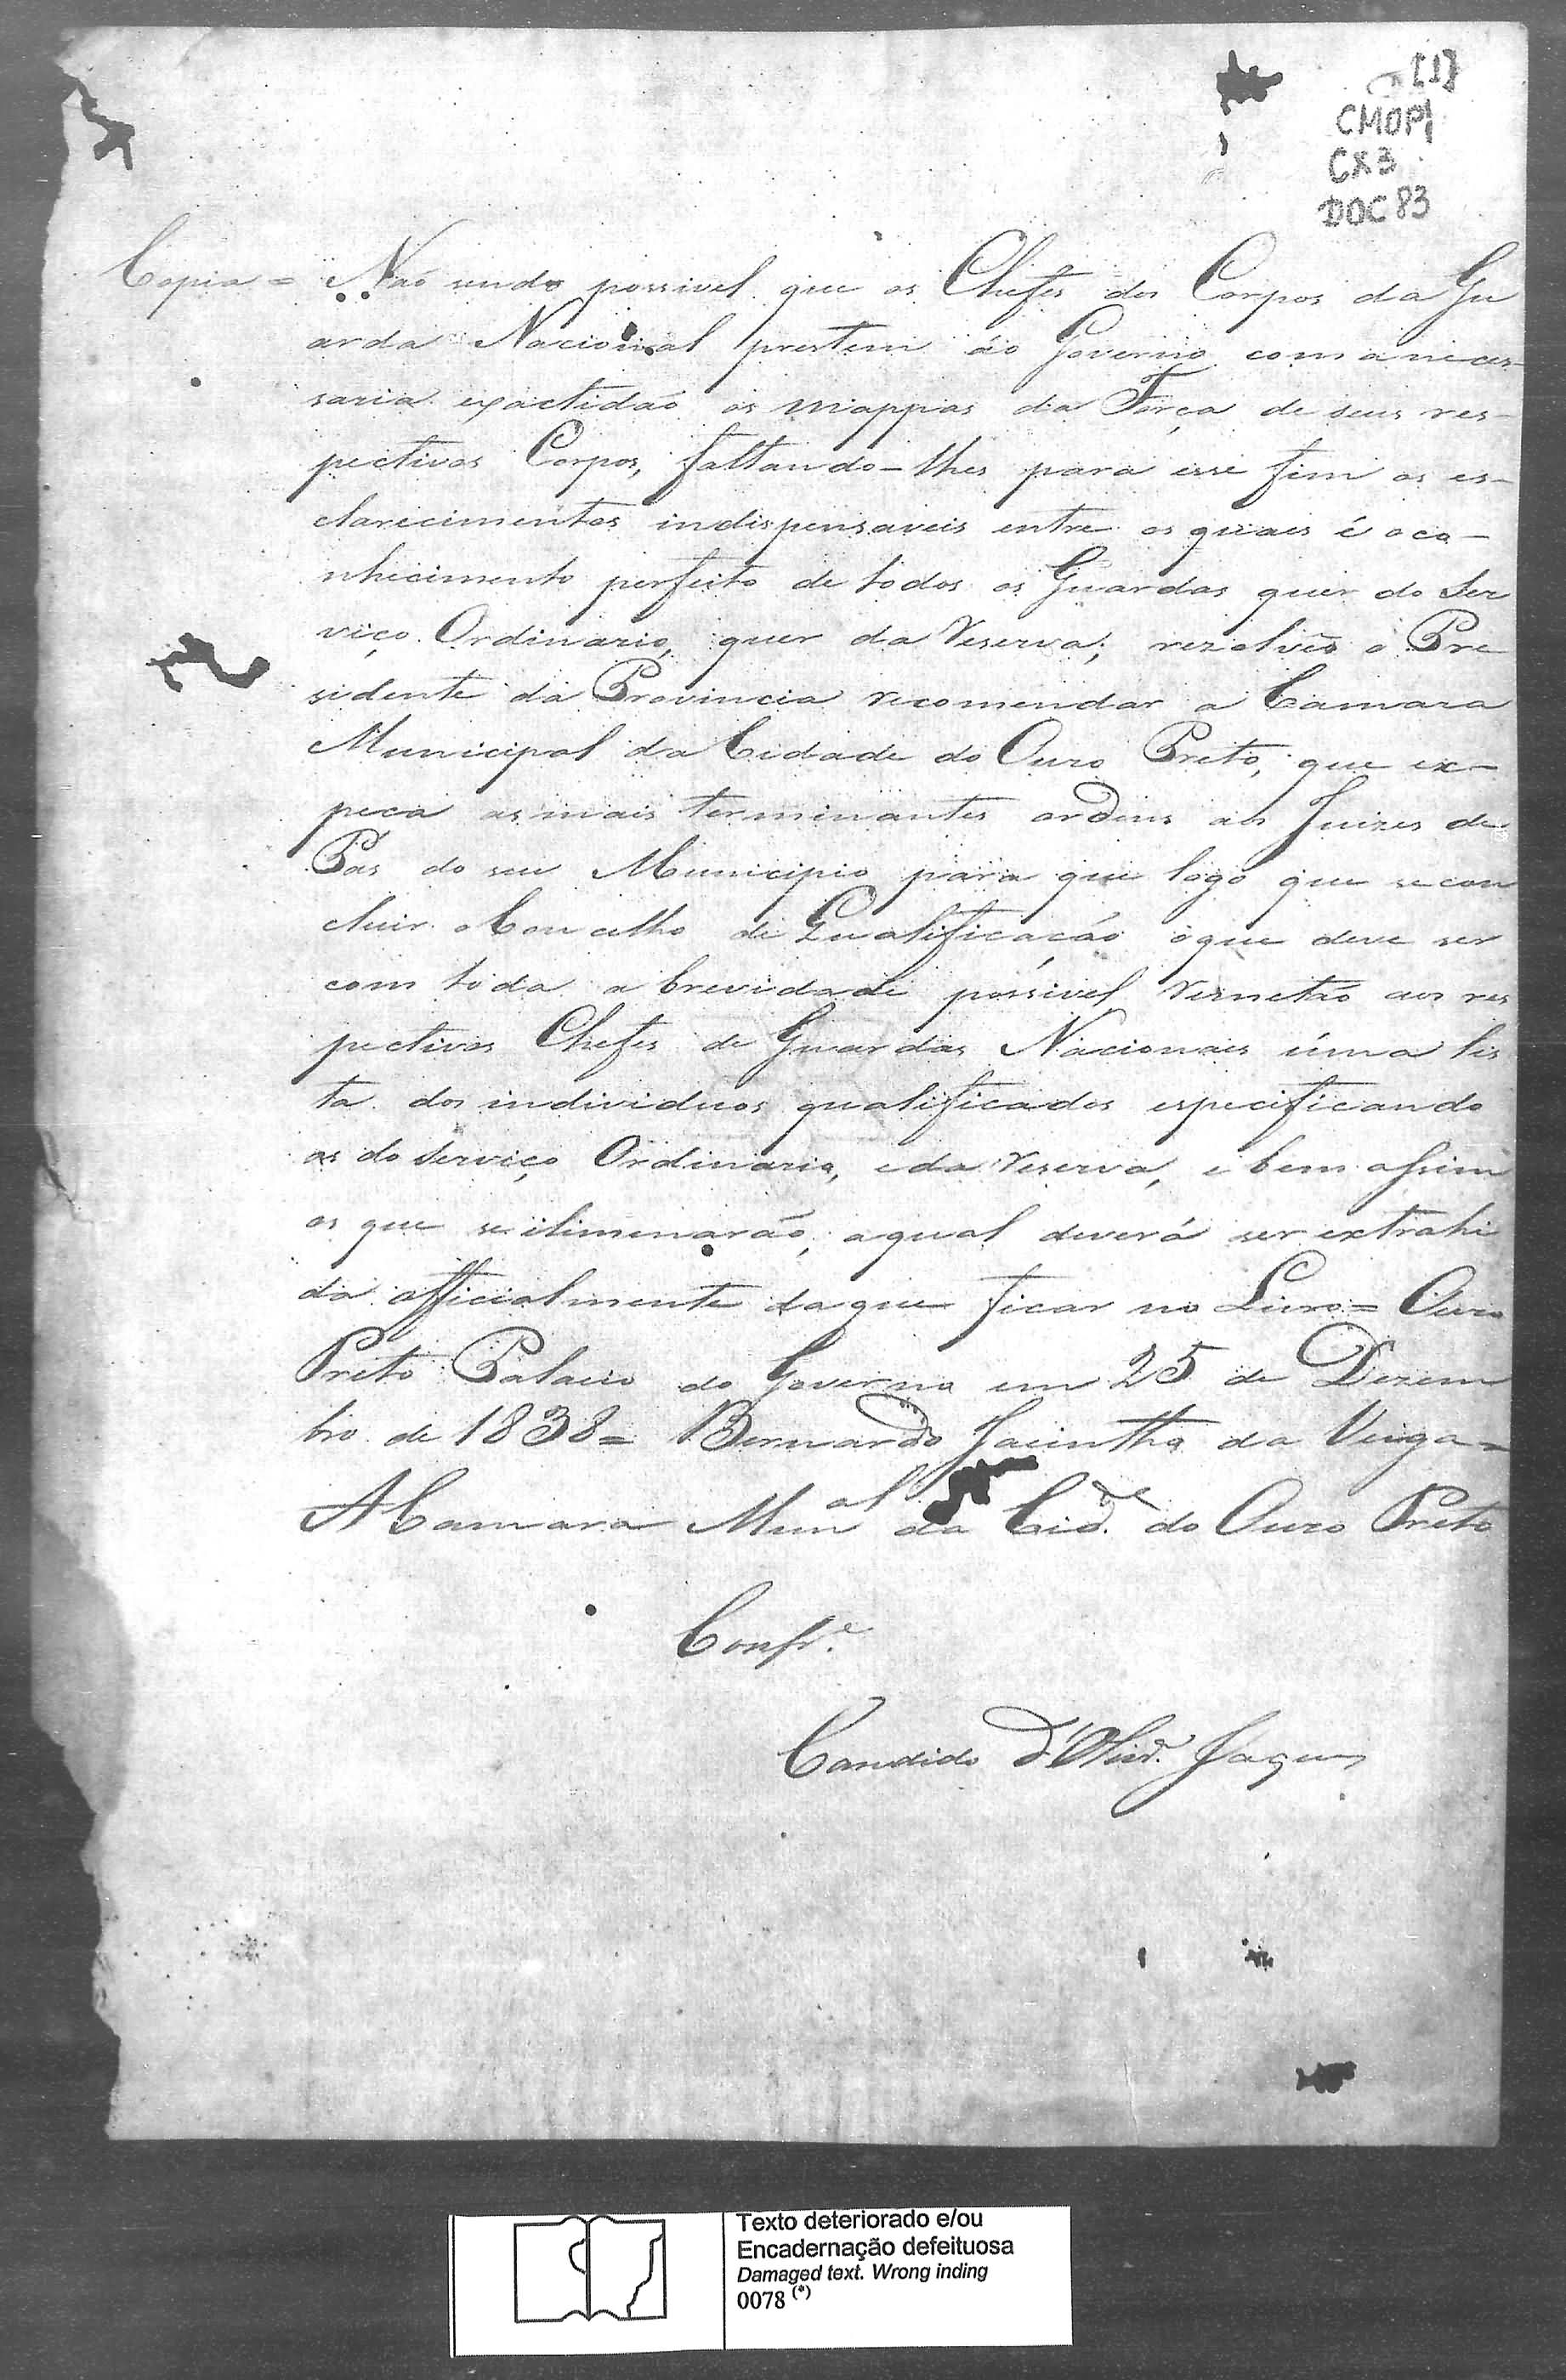 [1]
CMOP
CX3
DOC 83
Copia = Não sendo possivel que os Chefes dos Corpos da Gu
arda Nacional prestem áo Governo com a neces-
saria exactidão os mappas da Força de seus res-
pectivos Corpos, faltando-lhes para esse fim os es-
clarecimentos indispensaveis entre os quaes é o co-
nhecimento perfeito de todos os Guardas quer do Ser
viço Ordinario, quer da Reserva; rezolveo o Pre
sidente da Provincia recomendar a Camara
Municipal da Cidade do Ouro Preto, que ex-
peça as mais terminantes ordens aos Juizes de
Pas do seu Municipio para que logo que se con
cluir o Concelho de Qualificação o que deve ser
com toda a brevidade possivel remetão aos res
pectivos Chefes de Guardas Nacionaes úma lis
ta dos individuos qualificados especificando
os do Serviço Ordinario, e da Reserva, e bem assim
os que se iliminarão, a qual deverá ser extrahi
da officialmente da que ficar no Livro = Ouro
Preto Palacio do Governo em 25 de Dezem
bro de 1838 = Bernardo Jacintho da Veiga =
A Camara Mun.al da Cid.e do Ouro Preto
Confr.e
Candido d'Olivr.a Jaques
Texto deteriorado e/ou
Encadernação defeituosa
Damaged text. Wrong inding
0078 (*)